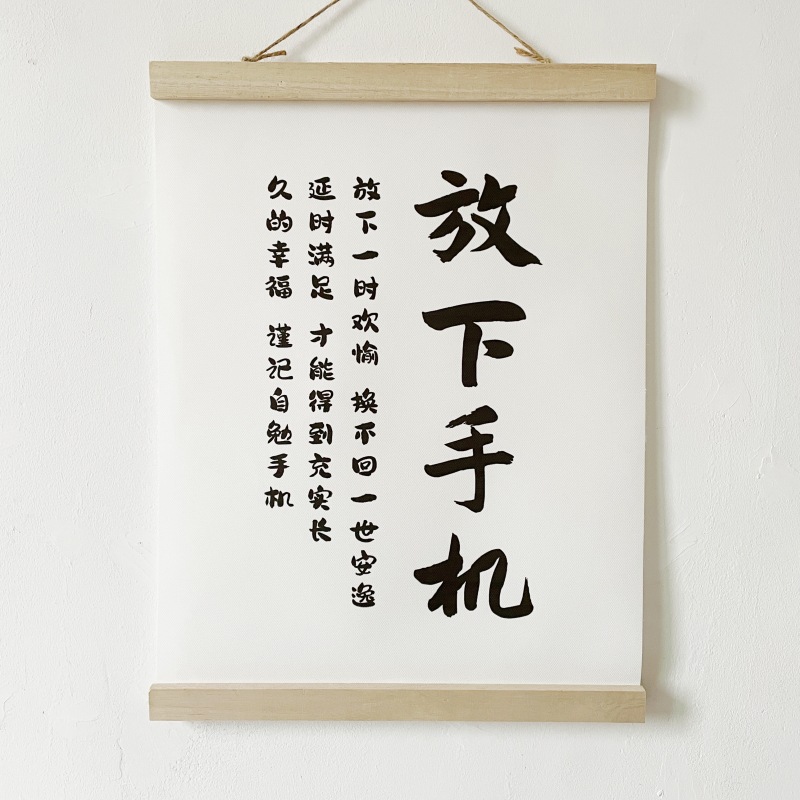 放下手机
放下一时欢愉 换不回一世安逸
延时满足 才能得到充实长
久的幸福 谨记自勉手机